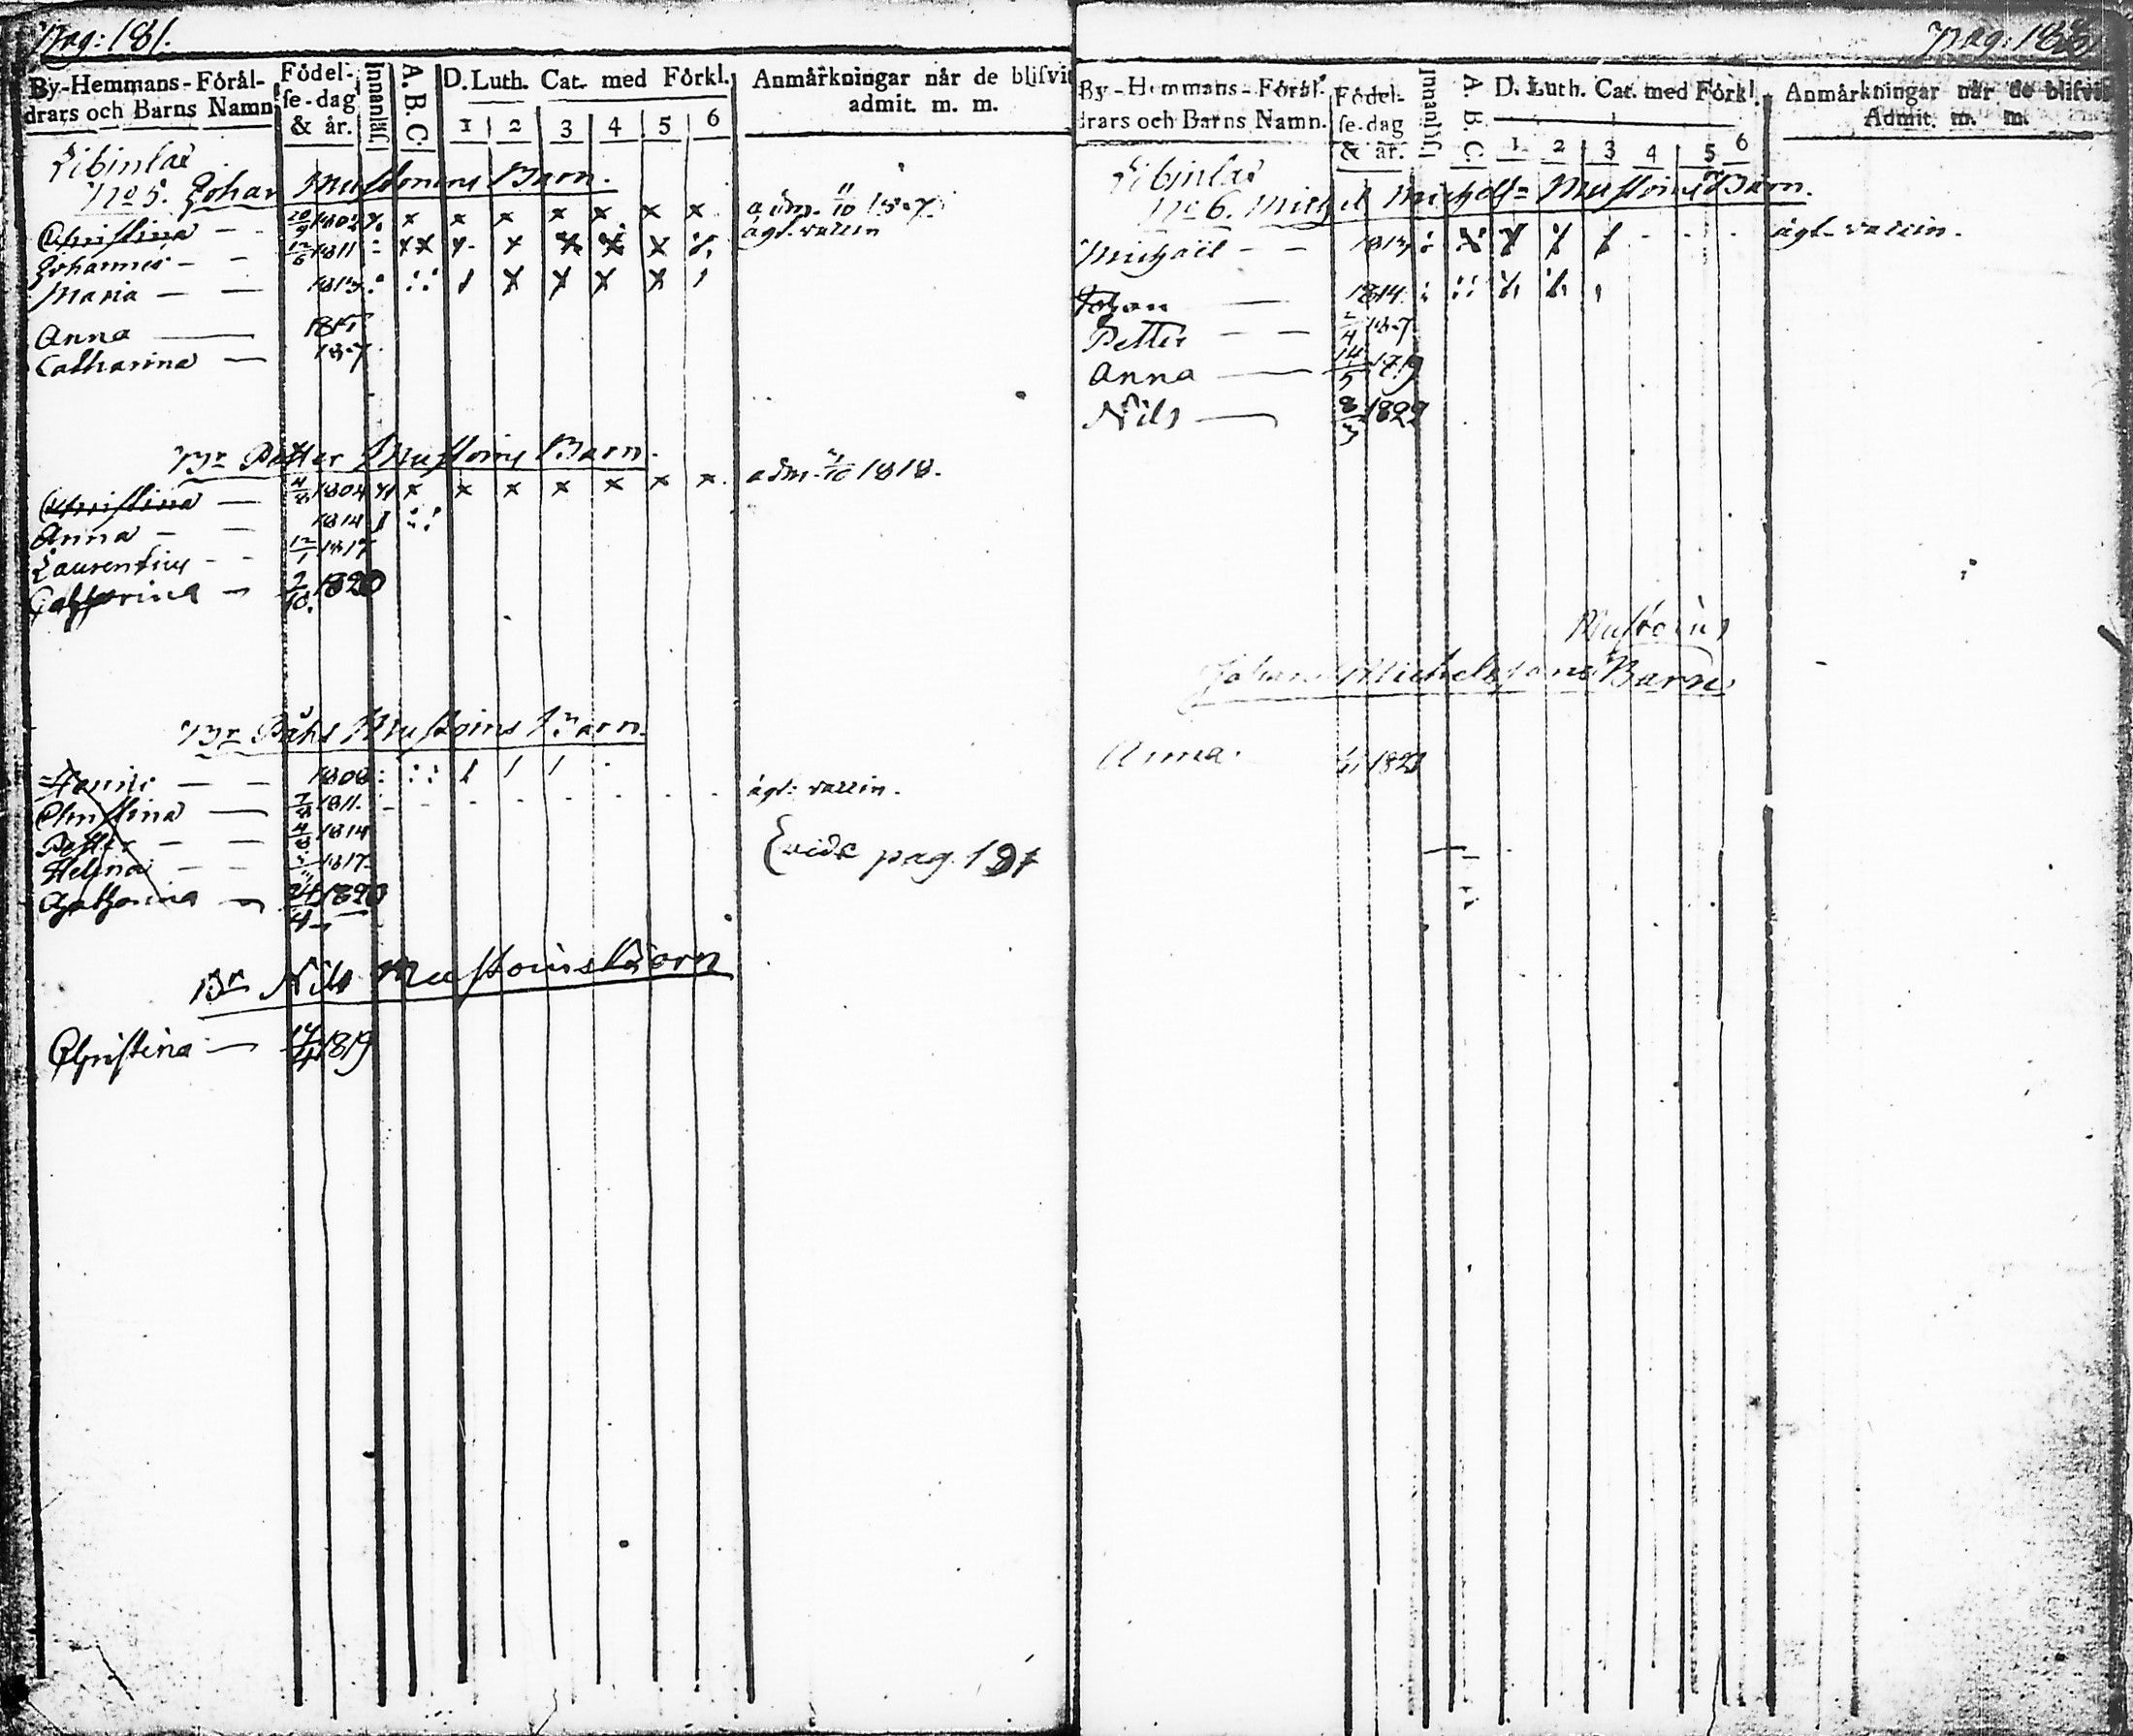 Pag: 181.
By-Hemmans-Förál-
drars och Barns Namn
Födel-
se-dag
& år.
Innanläs.
A. B. C.
D. Luth. Cat. med Förkl.
1 2 3 4 5 6
Anmårkningar når de blifvit
admit. m. m.
Libintai
No 5. Johan Mustonens Barn.
Christina — 20/9 1802 x x x x x x x x adm. 11/10
Johannes — 12/6 1811 ägt. vaccin
Maria — 1813
Anna — 1815
Catharina —
Br Petter Mustoins Barn.
Christina — 4/8 1804 x x x x x x x adm. /10 1818.
Anna — 1814
Laurentius — 12/1 1817
Catharina — 2/10. 1820
Br Påhls Mustoins Barn.
Henric — 1808
Christina — 7/8 1811. ägt. vaccin.
Petter — 4/8 1814
Helena — 1817.
Catharina — 24/4 1820
{vide pag. 181
Br Nils Mustoins Barn
Christina — 17/4 1819
Pag: 182
By-Hemmans-Förál-
drars och Barns Namn.
Födel-
se-dag
& år.
Innanläs.
A. B. C.
D. Luth. Cat. med Förkl.
1 2 3 4 5 6
Anmårkningar når de blifvit
Admit. m. m.
Libintai
No 6. Michel Michels- Mustoins Barn.
Michaël — 1813 ägt. vaccin.
Johan — 1814
Petter —
Anna — 14/5 1819
Nils — 8/3 1822
Mustoins
Johan Michelssons Barn
Anna.